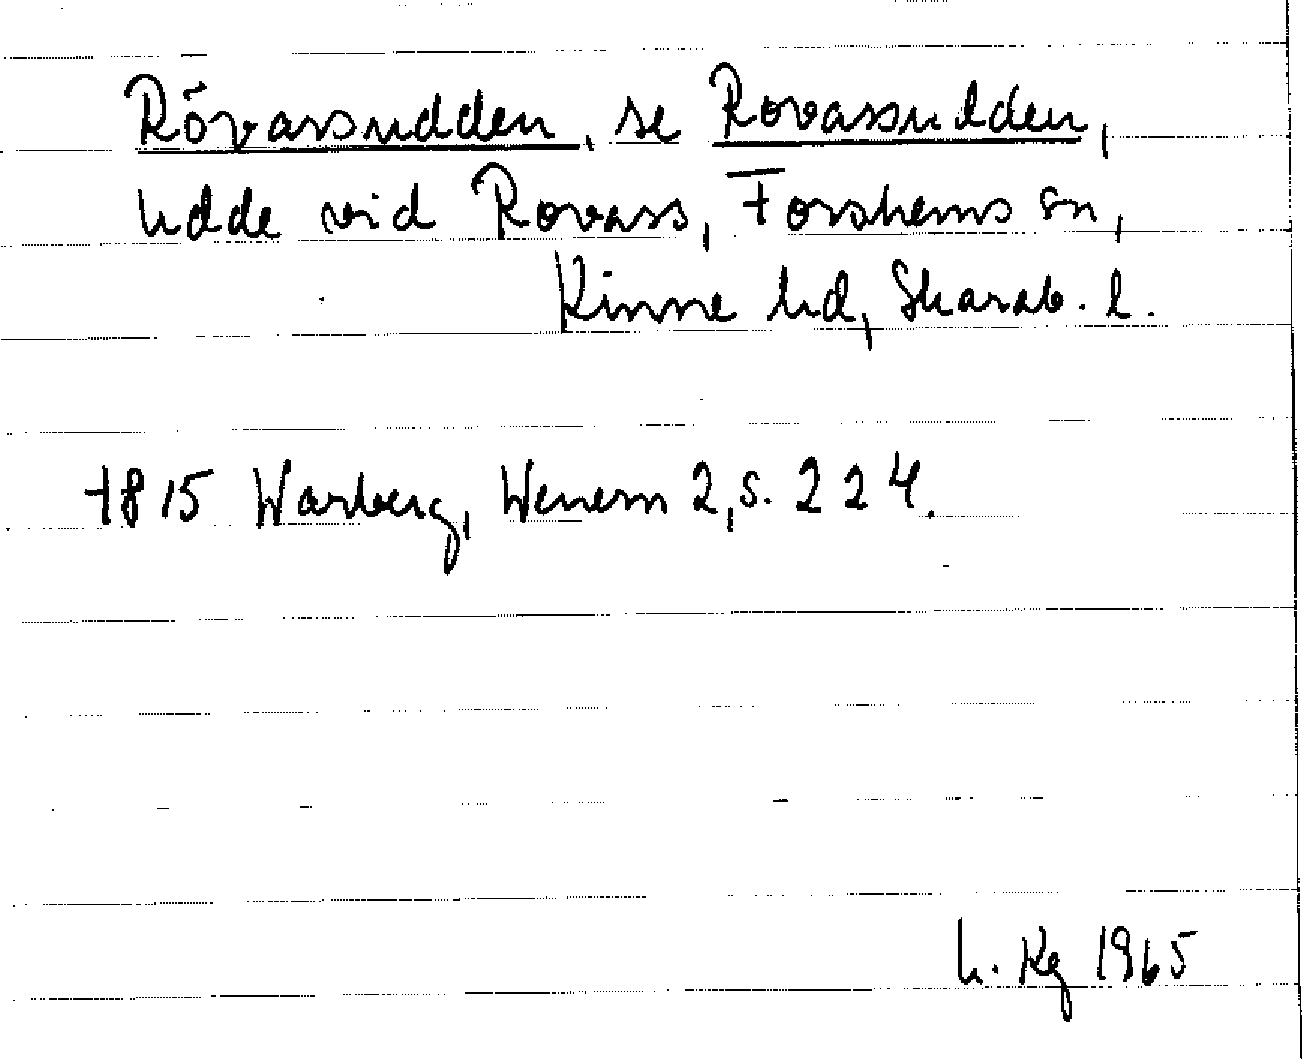 Rövassudden, se Rovassudden,
udde vid Rovass, Forshems sn,
Kinne hd, Skarab. l.
1815 Warberg, Wenern 2, s. 224.
h. Kg 1965